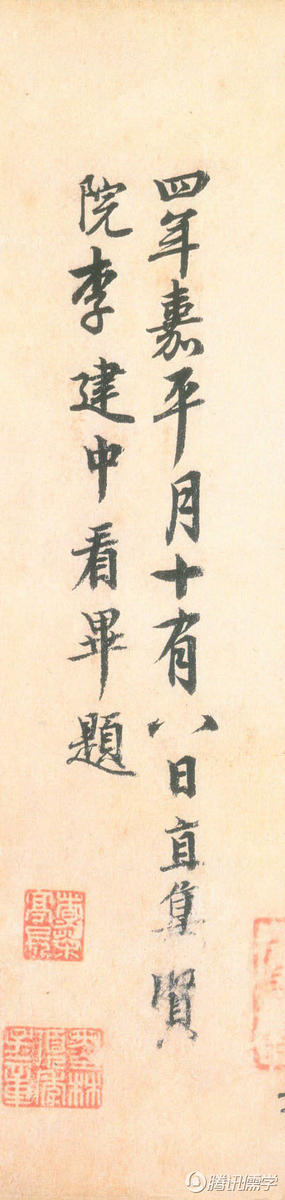 四年嘉平月十有八日直集賢
院李建中看畢題
腾讯儒学